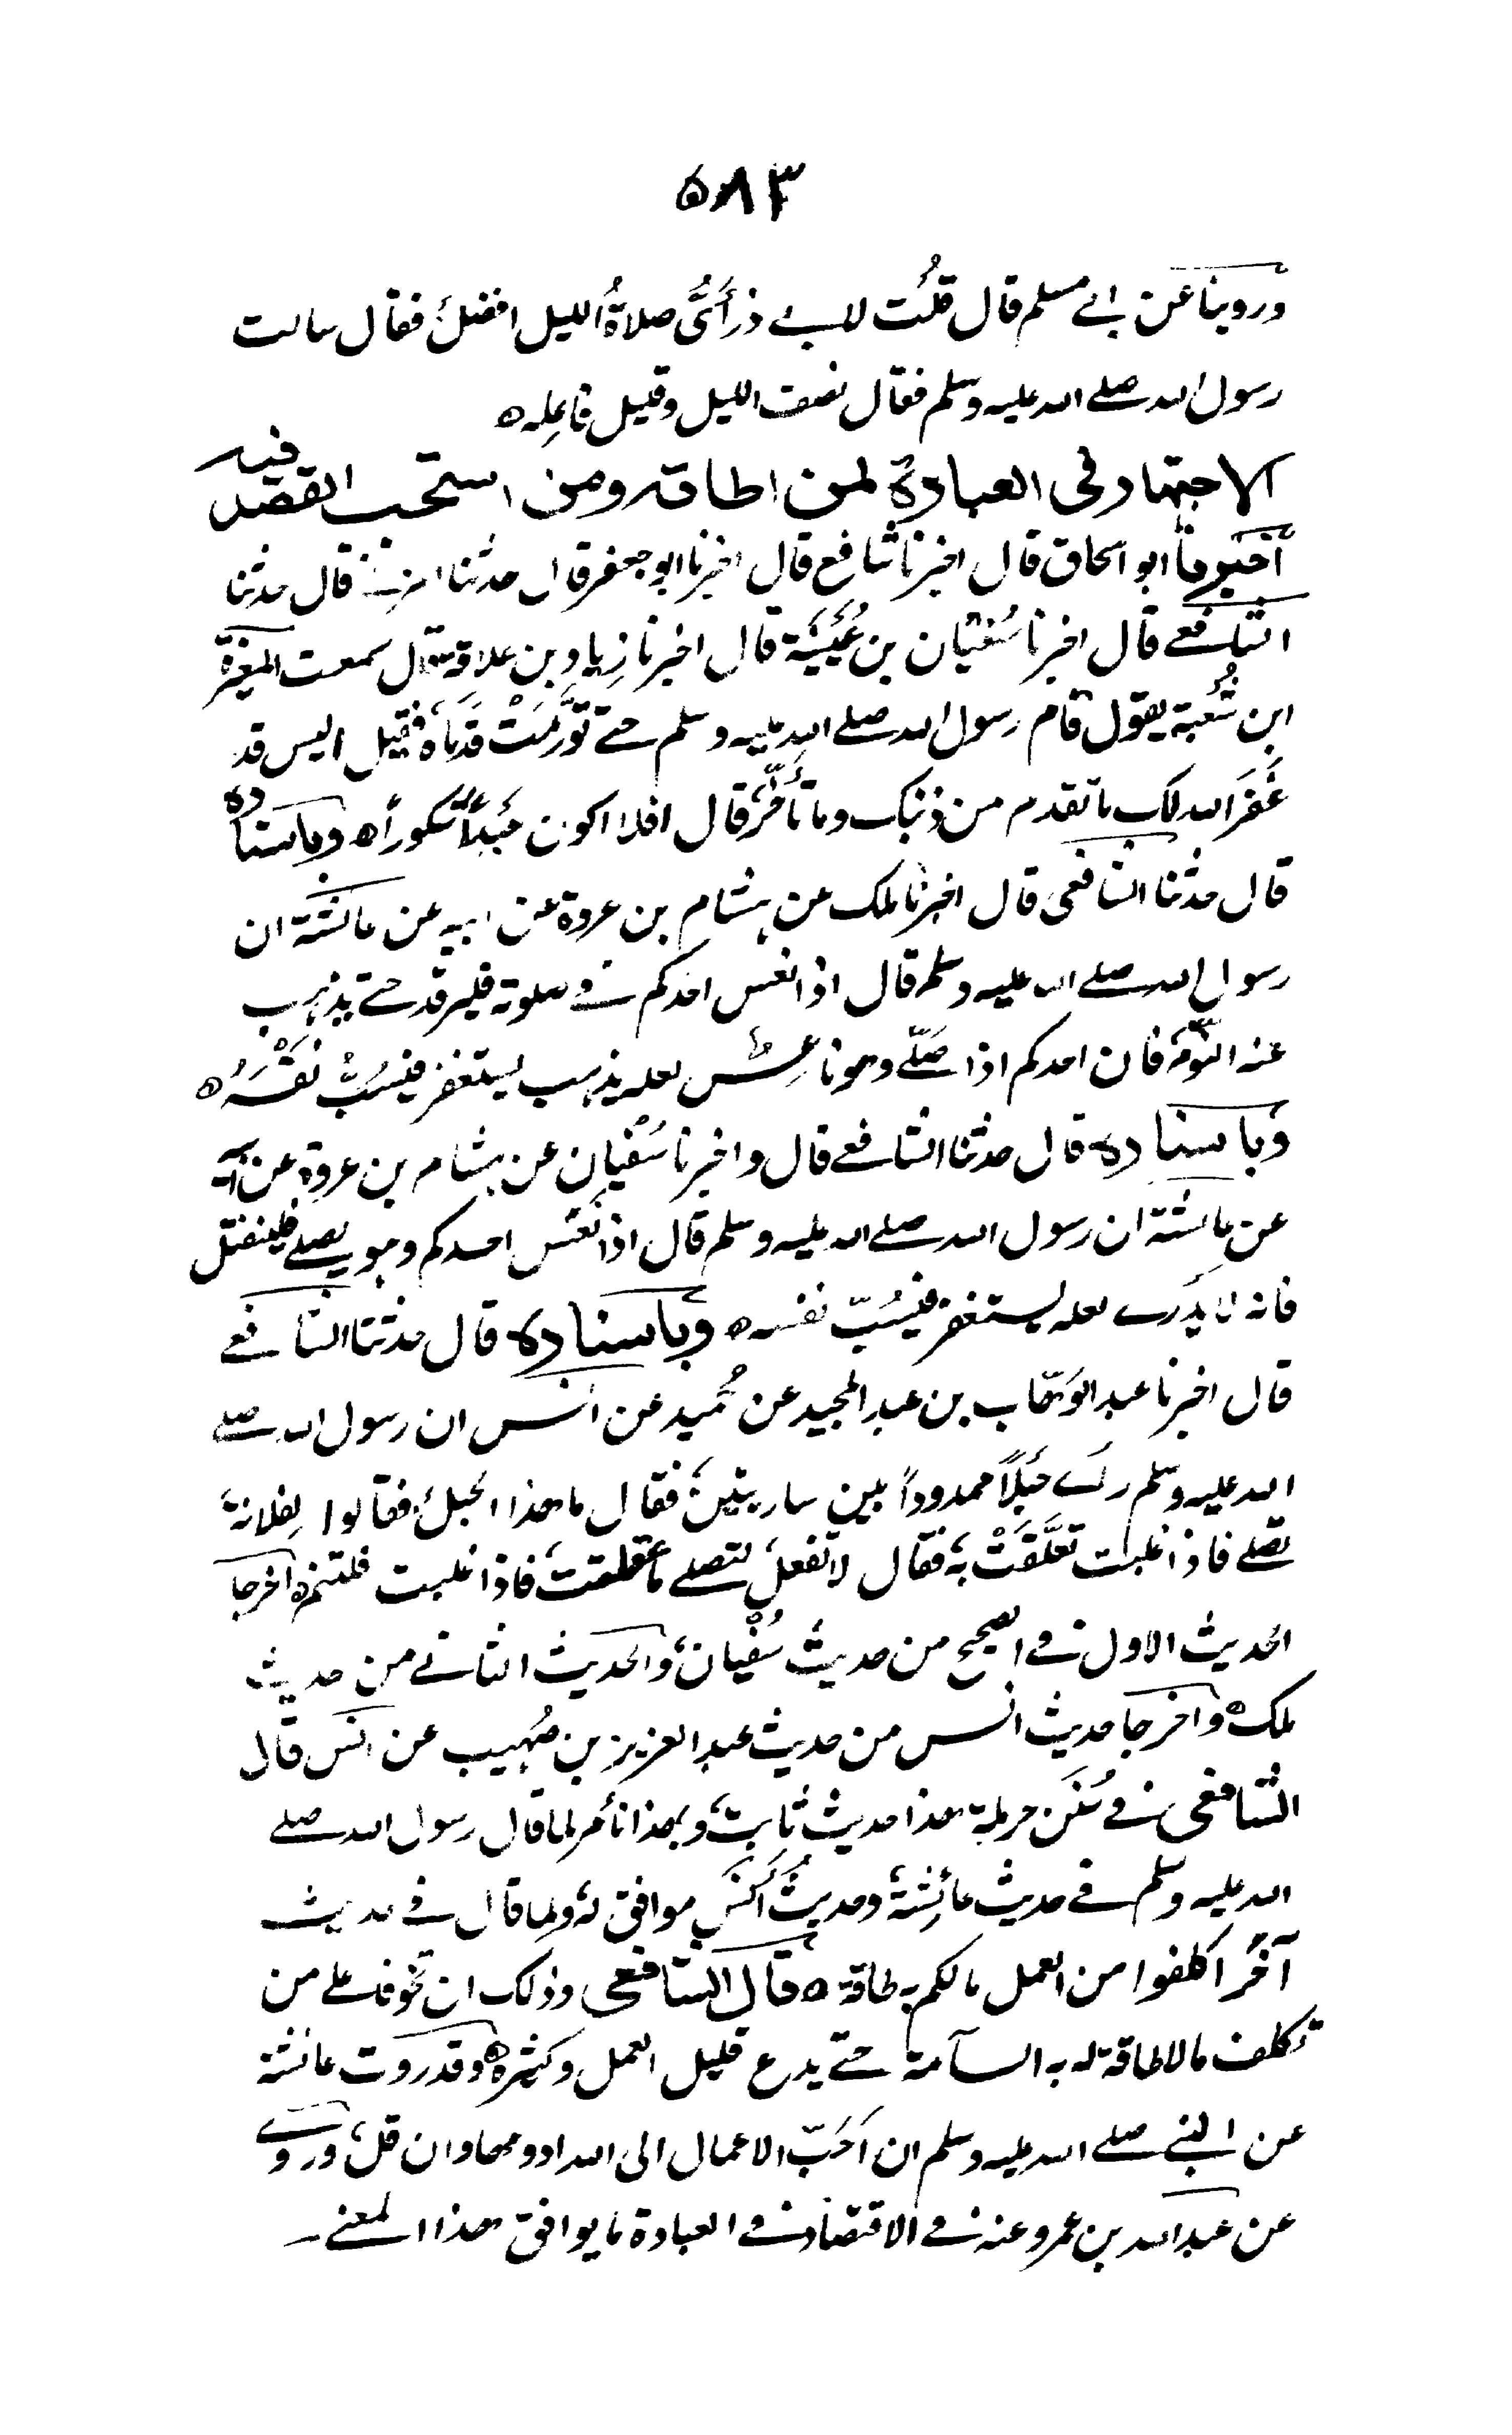 ٥٨٣
وروينا عن ابي مسلم قال قلُت لابي ذر أَيُّ صلاةُ الليل افضل فقال سالت
رسول الله صلى الله عليه وسلم فقال نصف الليل وقليل فاعِله ه
الاجتهاد في العبادة لمن اطاقه ومن استحب القصد فيه
أخبرنا ابو اسحاق قال اخبرنا شافع قال اخبرنا ابو جعفر قال حدثنا المزني قال حدثنا
الشافعي قال اخبرنا سُفيان بن عُيَيْنَة قال اخبرنا زِياد بن علاقة قال سمعت المغيرة
ابن شُعبة يقول قام رسول الله صلى الله عليه وسلم حتى تَوَرَّمَتْ قدَمَاه فقيل اليس قد
غَفَرَ الله لك ما تقدم من ذنبك وما تأخَّرَ قال افلا اكون عَبْداً شكوراً ه وباسناده
قال حدثنا الشافعي قال اخبرنا ملك عن هشام بن عروة عن ابيه عن عائشة ان
رسول الله صلى الله عليه وسلم قال اذا نعس احدكم في صلوته فليرقد حتى يذهب
عنه النوم فان احدكم اذا صَلّى وهو ناعِسٌ لعله يذهب يستغفر فيسُبُّ نفْسَهُ ه
وباسناده قال حدثنا الشافعي قال واخبرنا سُفْيان عن هشام بن عروة عن ابيه
عن عائشة ان رسول الله صلى الله عليه وسلم قال اذا نَعَس احدكم وهو يصلي فلينفتل
فانه لا يدَرى لعله يستغفر فيسُبّ نفسه ه وباسناده قال حدثنا الشافعي
قال اخبرنا عبد الوَهّاب بن عبد المجيد عن حُميد عن أنس ان رسول الله صلى
الله عليه وسلم رأى حَبْلاً ممدوداً بين ساريتين فقال ما هذا الحبل فقالوا لِفلانة
تصلي فاذا غلبت تعلَّقَتْ به فقال لا تفعل لتصلي ما عقلت فاذا غلبت فلتنم ه اخرجا
الحديث الاول في الصحيح من حديث سُفْيان والحديث الثاني من حديث
ملك ه واخرجا حديث انس من حديث عبد العزيز بن صُهيب عن انس قال
الشافعي في سُنَن حرملة هذا حديث ثابت وبهذا نأمر لما قال رسول الله صلى
الله عليه وسلم في حديث عائِشة وحديث أنَس موافق له ولما قال في حديث
آخر اكلفوا من العمل ما لكم به طاقة ه قال الشافعي وذلك ان تخوف على من
تكلف ما لا طاقة له به السآمة حتى يدع قليل العمل وكثيره ه وقد روت عائشة
عن النبي صلى الله عليه وسلم ان أحَبّ الاعمال الى الله ادومها وان قل وروى
عن عبد الله بن عمرو عنه في الاقتصاد في العبادة ما يوافق هذا المعنى